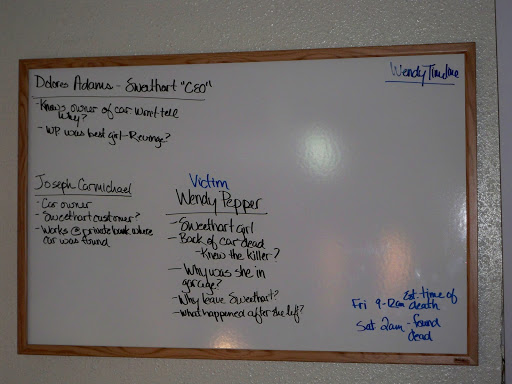 Dolores Adams - Sweethart "CEO"
- Knows owner of car won't tell
Why?
- WP was best girl - Revenge?
Wendy Timeline
Joseph Carmichael
- Car owner
- Sweethart customer?
- Works @ private bank where
car was found
Victim
Wendy Pepper
- Sweethart girl
- Back of car dead
- Knew the killer?
- Why was she in
garage?
- Why leave Sweethart?
- What happened after she left?
Fri 9-12am Est. time of
death
Sat 2am - found
dead